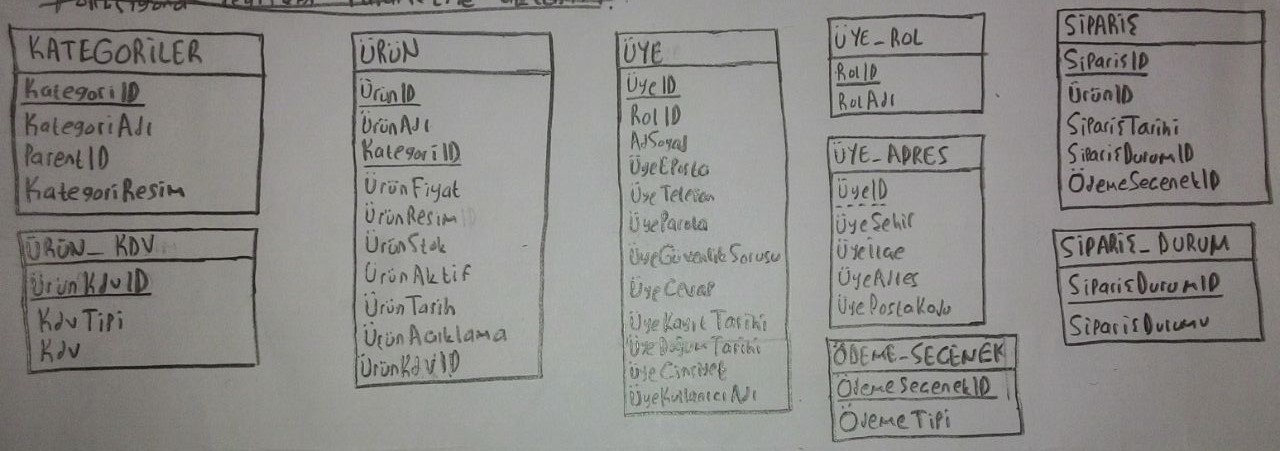 KATEGORİLER
KategoriID
KategoriAdı
ParentID
KategoriResim
ÜRÜN_KDV
ÜrünKdvID
KdvTipi
Kdv
ÜRÜN
ÜrünID
ÜrünAdı
KategoriID
ÜrünFiyat
ÜrünResim
ÜrünStok
ÜrünAktif
ÜrünTarih
ÜrünAcıklama
ÜrünKdvID
ÜYE
ÜyeID
RolID
AdSoyad
ÜyeEPosta
ÜyeTelefon
ÜyeParola
ÜyeGüvenlikSorusu
ÜyeCevap
ÜyeKayıtTarihi
ÜyeDoğumTarihi
ÜyeCinsiyet
ÜyeKullanıcıAdı
ÜYE_ROL
RolID
RolAdı
ÜYE_ADRES
ÜyeID
ÜyeŞehir
Üyeilçe
ÜyeAdres
ÜyePostaKodu
ÖDEME_SECENEK
ÖdemeSecenekID
ÖdemeTipi
SİPARİŞ
SiparisID
ÜrünID
SiparişTarihi
SiparişDurumID
ÖdemeSecenekID
SİPARİŞ_DURUM
SiparişDurumID
SiparisDurumu